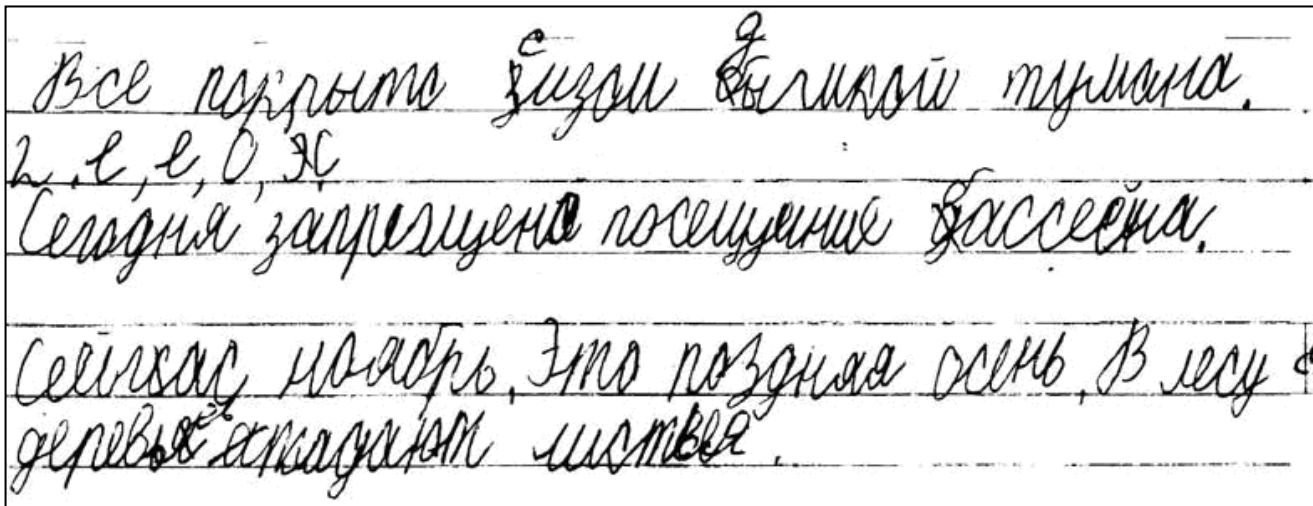 Все покрыто сизой дымкой тумана.
г, е, е, О, Ж
Сегодня запрещено посещение бассейна.
Сейчас ноябрь, Это поздняя осень, В лесу с
деревьев опадают листвея.